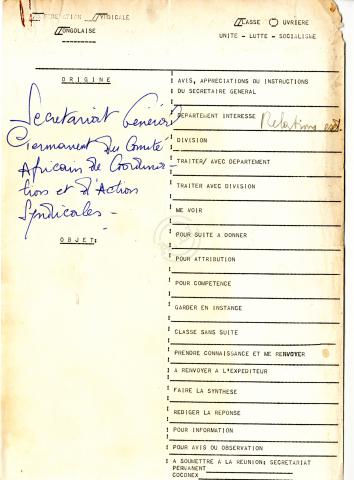 SYNDICALE
CONGOLAISE
CLASSE OUVRIERE
UNITE - LUTTE - SOCIALISME
ORIGINE
Secretariat Général
Permanent du Comité
Africain de Coordina-
tion et d'Action
Syndicales -
OBJET:
AVIS, APPRECIATIONS OU INSTRUCTIONS
DU SECRETAIRE GENERAL
DEPARTEMENT INTERESSE Relations ext.
DIVISION
TRAITER/ AVEC DEPARTEMENT
TRAITER AVEC DIVISION
ME VOIR
POUR SUITE A DONNER
POUR ATTRIBUTION
POUR COMPETENCE
GARDER EN INSTANCE
CLASSE SANS SUITE
PRENDRE CONNAISSANCE ET ME RENVOYER
A RENVOYER A L'EXPEDITEUR
FAIRE LA SYNTHESE
REDIGER LA REPONSE
POUR INFORMATION
POUR AVIS OU OBSERVATION
A SOUMETTRE A LA REUNION: SECRETARIAT
PERMANENT
COCONEX